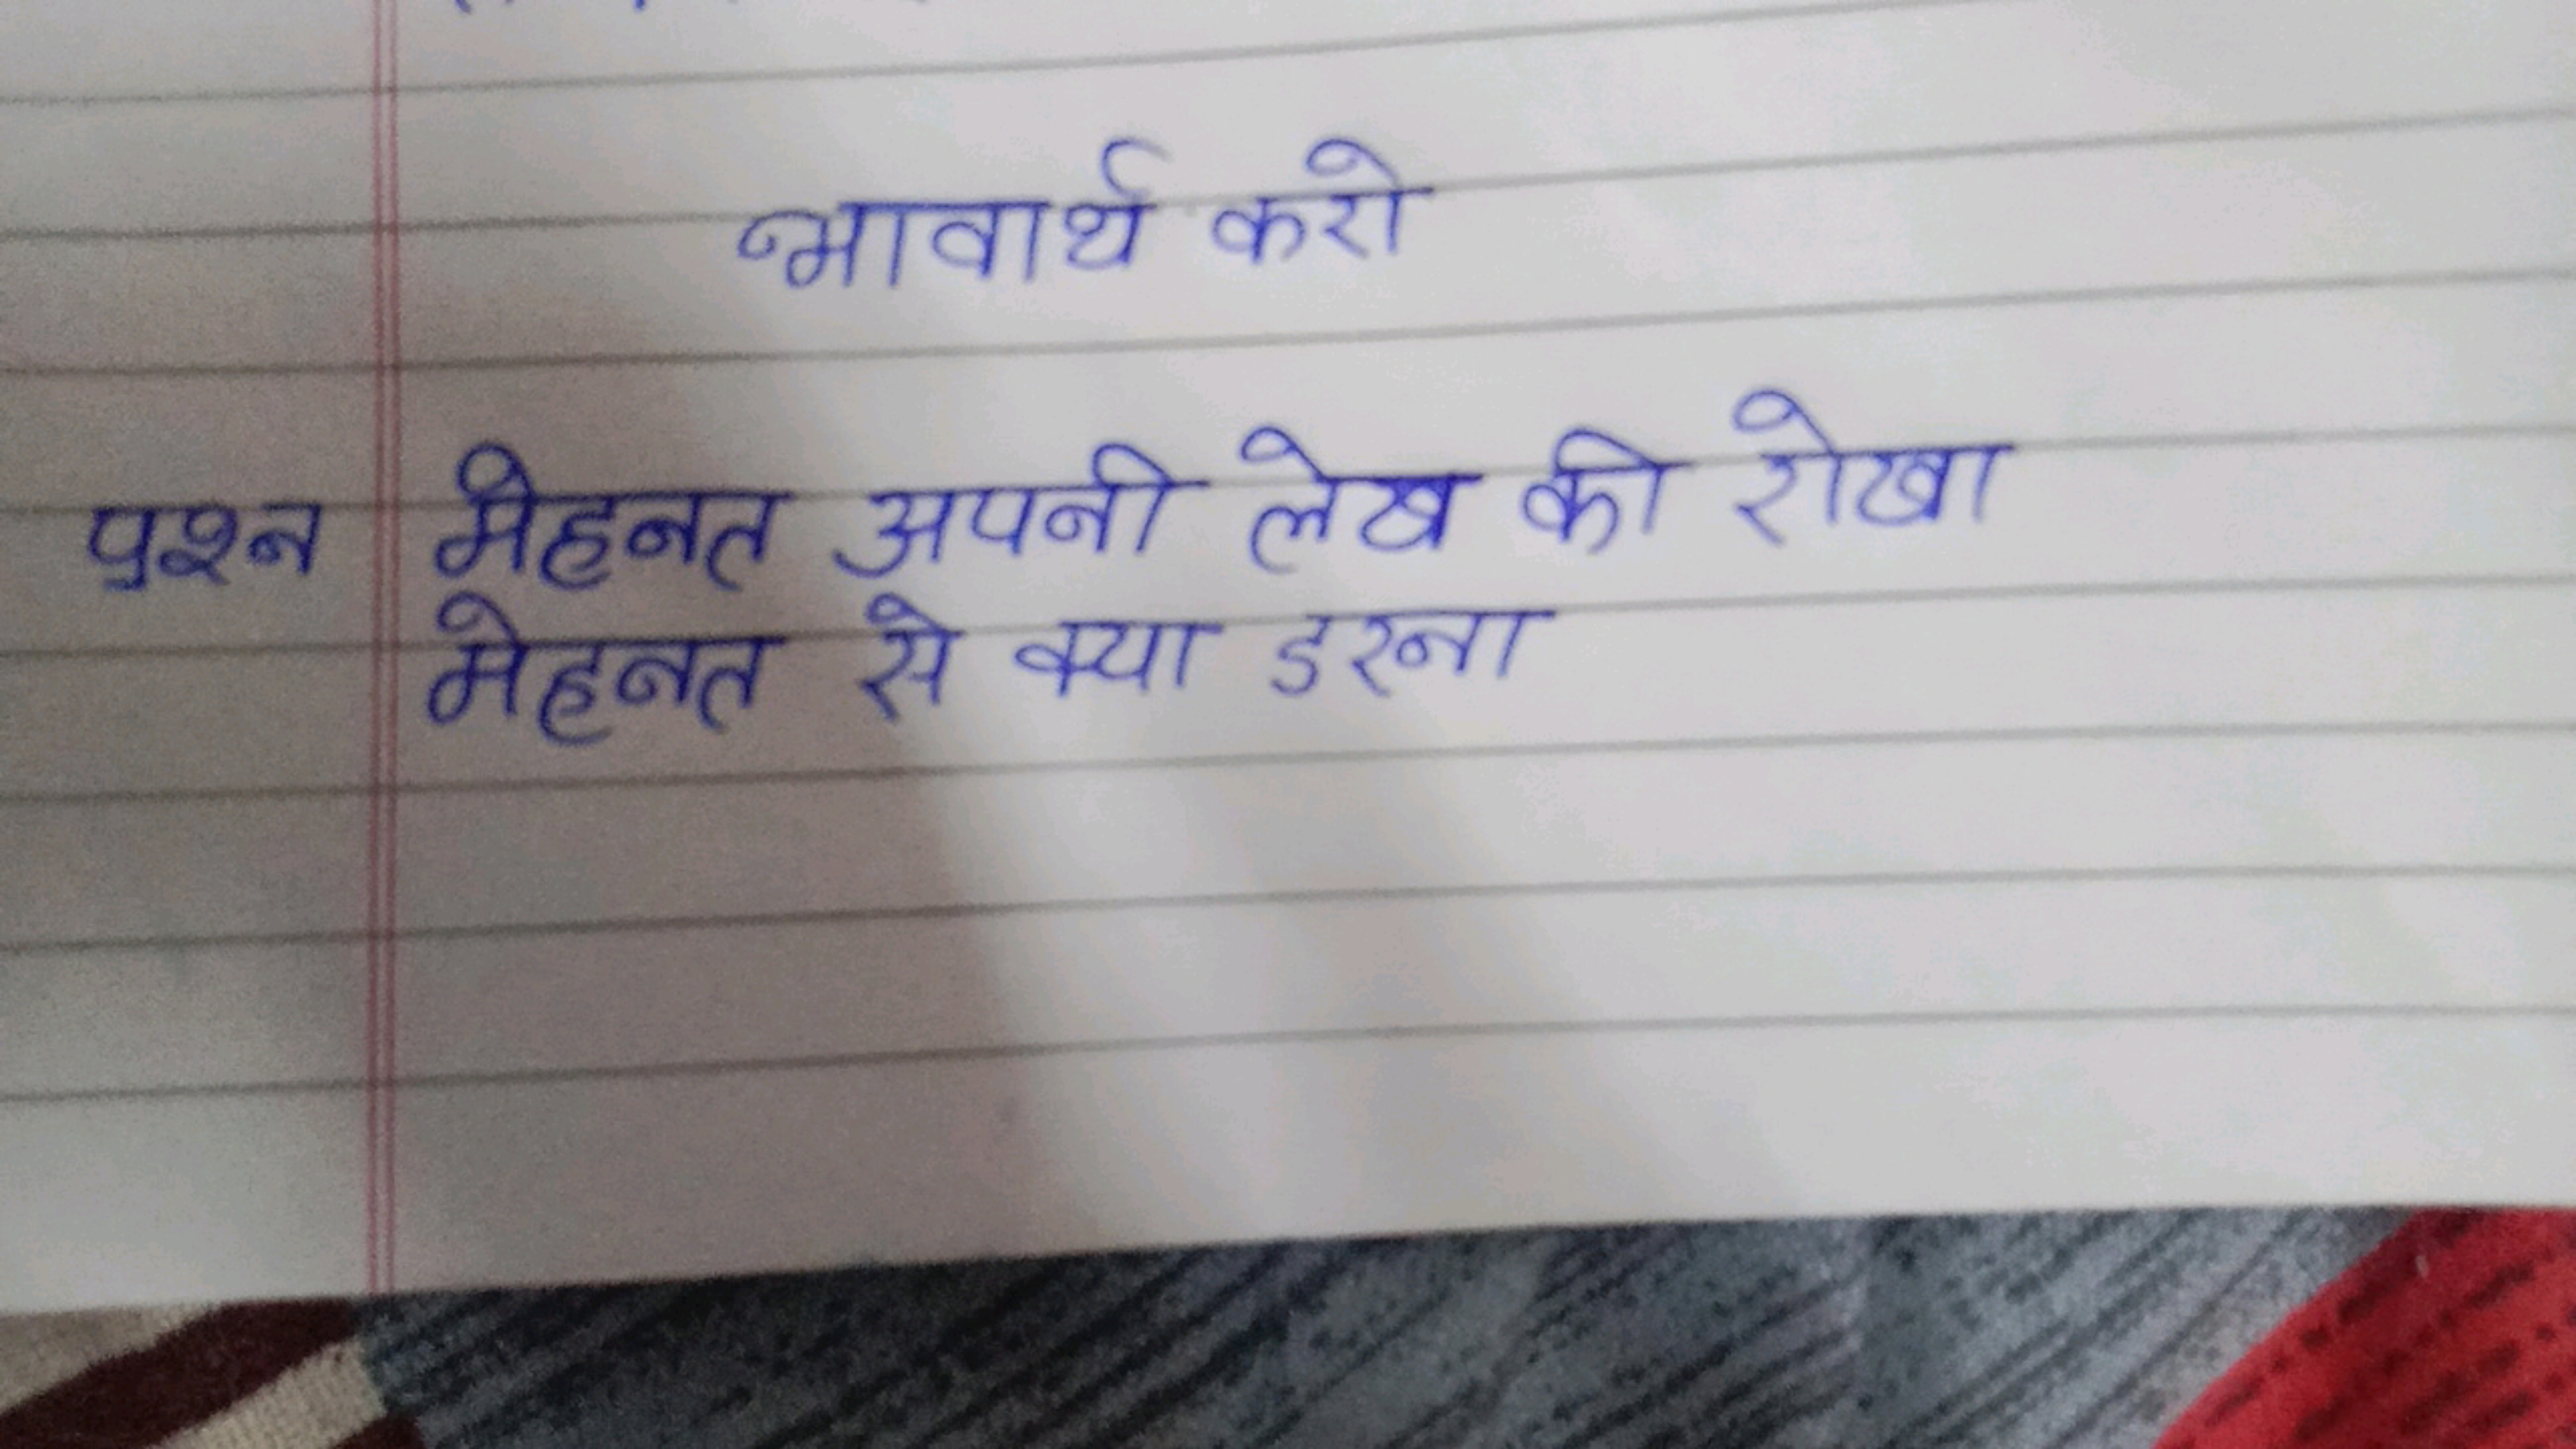 भावार्थ करो
प्रश्न मेहनत अपनी लेख की रोखा
मेहनत से क्या डरना